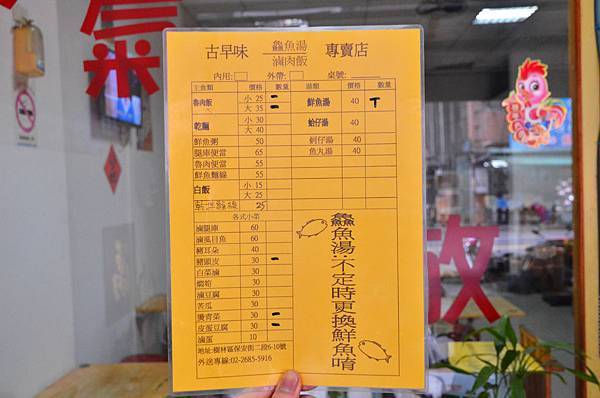 古早味 鱻魚湯 滷肉飯 專賣店
內用: 外帶: 桌號:
主食類 價格 數量 湯類 價格 數量
魯肉飯 小 25 鮮魚湯 40
大 35
乾麵 小 30 蛤仔湯 40
大 40
鮮魚粥 50 蚵仔湯 40
腿庫便當 65 魚丸湯 40
魯肉便當 55
鮮魚麵線 55
白飯 小 15
大 25
乾拌麵線 25
各式小菜
滷腿庫 60
滷虱目魚 60
豬耳朵 40
豬頭皮 30
白菜滷 30
焢筍 30
滷豆腐 30
苦瓜 30
燙青菜 30
皮蛋豆腐 30
滷蛋 10
鱻魚湯:不定時更換鮮魚唷
地址:樹林區保安街二段6-10號
外送專線:02-2685-5916